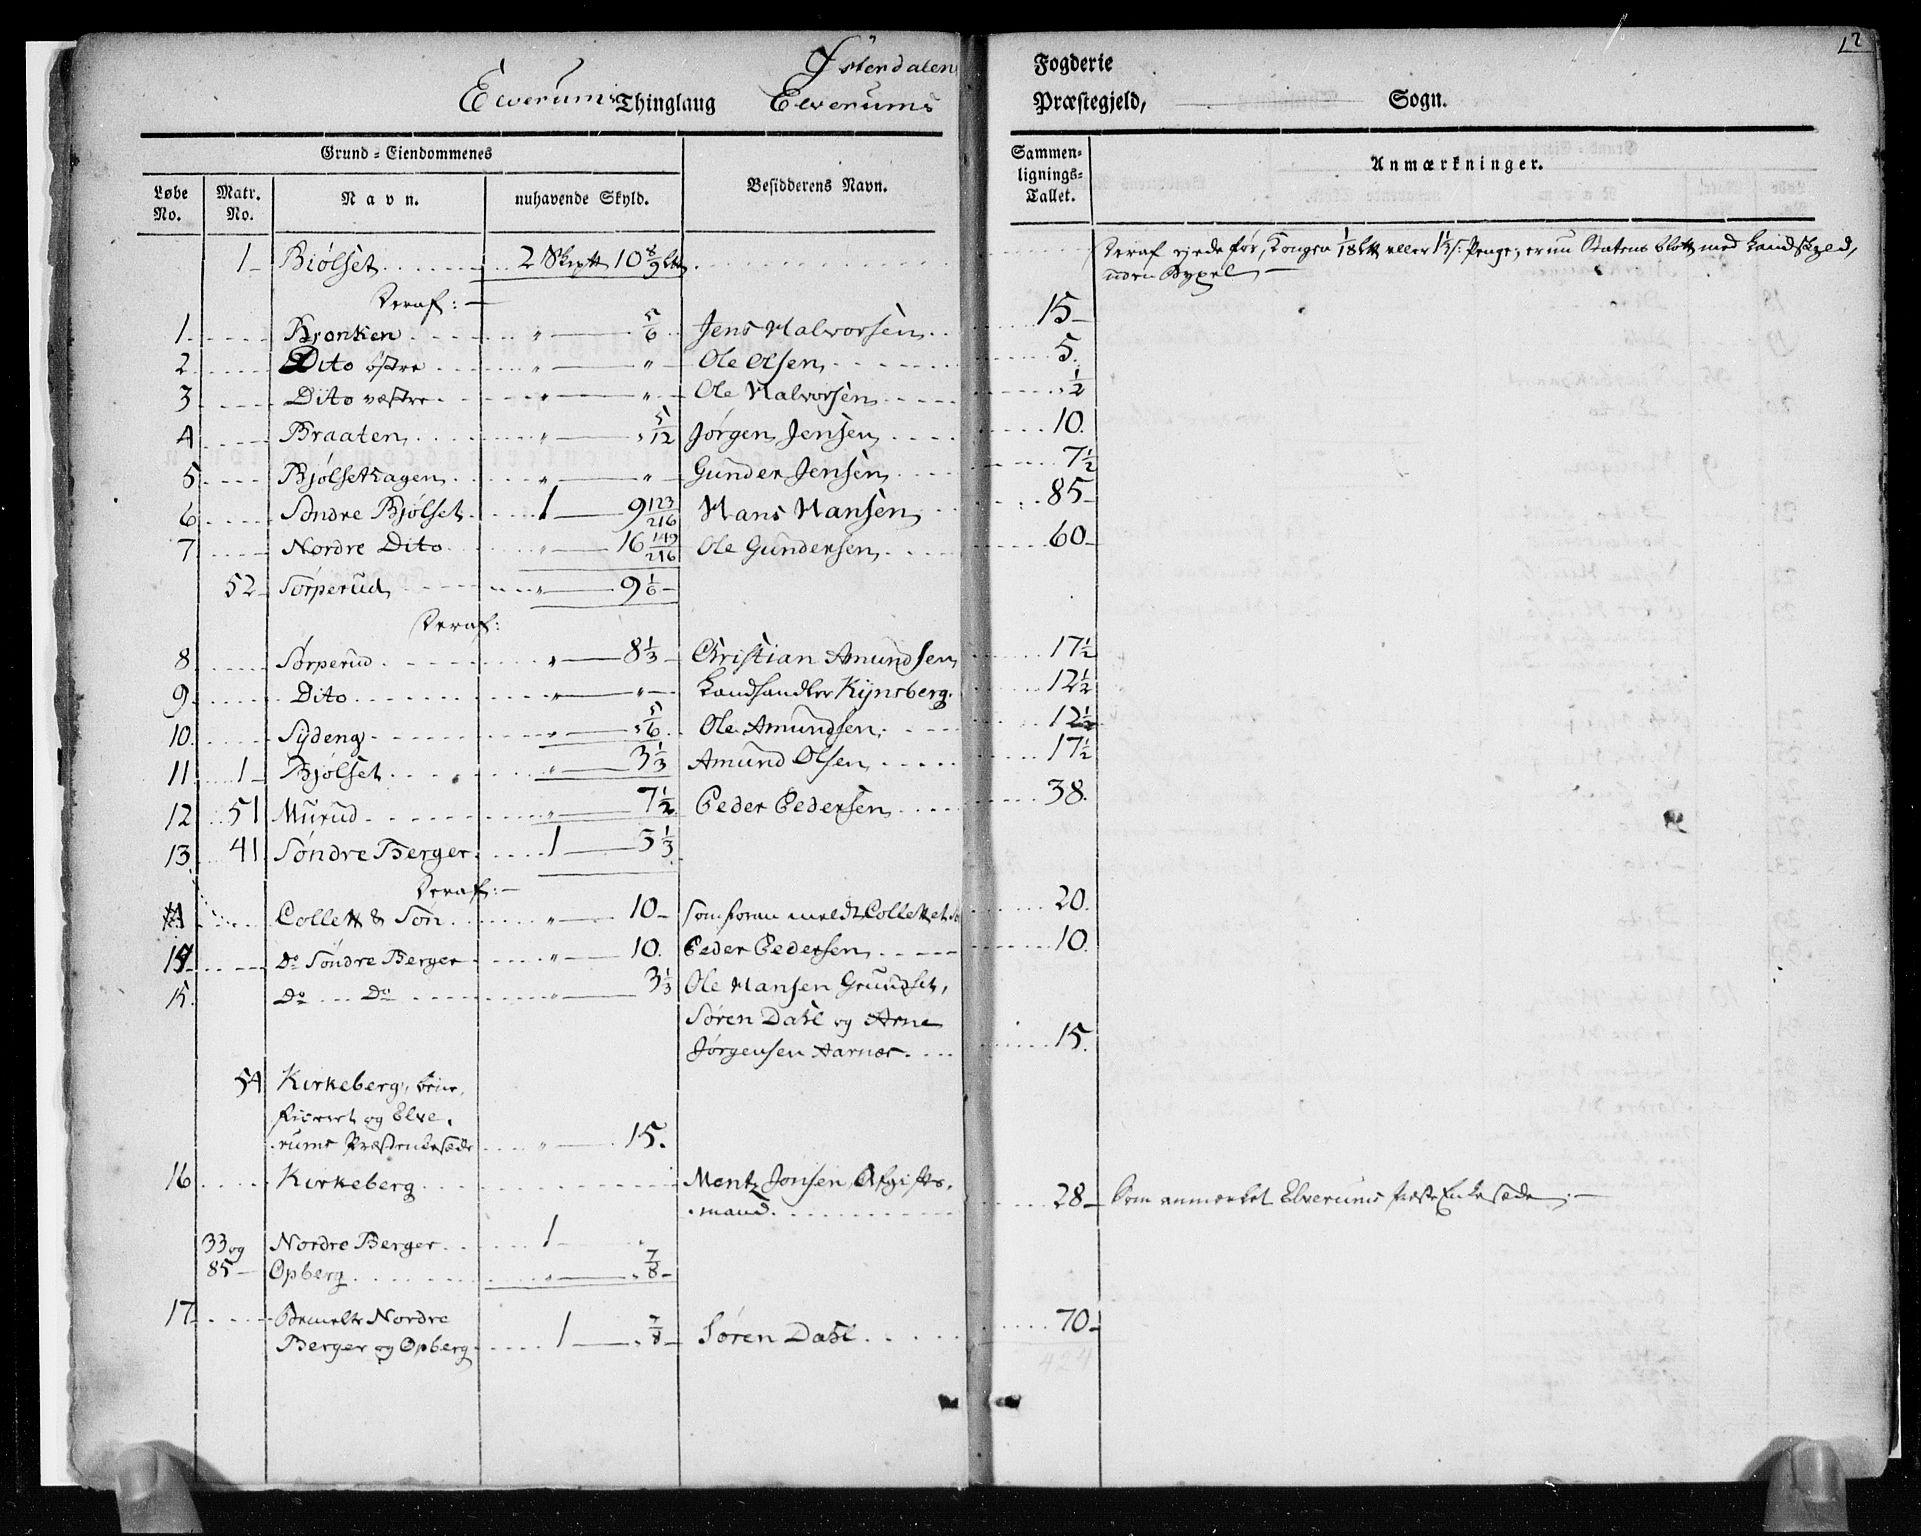 12
Østerdalen Fogderie
Elverums Thinglaug Elverums Præstegjeld, Sogn.
Grund-Eiendommenes
Løbe No. Matr. No. Navn. nuhavende Skyld. Besidderens Navn. Sammenlignings-Tallet. Anmærkninger.
1 Biølset 2 Skptt 10 8/9 Deraf eiede før, Kongen 1/18 eller 1 1/3 s: Penge; er nu Statens blott med Landskyld,
uden Bygsel
Deraf:
1 Bronken " 5/6 Jens Halvorsen 15
2 Dito østre " " Ole Olsen 5.
3 Dito væstre " " Ole Halvorsen 1/2
4 Braaten " 5/12 Jørgen Jensen 10.
5 Bjølsethagen " " Gunder Jensen 7 1/2
6 Søndre Bjølset 1 9 123/216 Hans Hansen 85
7 Nordre Dito " 16 149/216 Ole Gundersen 60
52 Sørperud " 9 1/6
Deraf:
8 Sørperud " 8 1/3 Christian Amundsen 17 1/2
9 Dito " " Landhandler Kynsberg. 12 1/2
10 Sydeng " 5/6 Ole Amundsen 12 1/2
11 1 Bjølset " 3 1/3 Amund Olsen 17 1/2
12 51 Murud " 7 1/2 Peder Pedersen 38.
13 41 Søndre Berger 1 3 1/3
Deraf:
Collett & Søn " 10 Som foran meldt Collett et 20.
14 Do Søndre Berger " 10. Peder Pedersen 10.
15. Do Do " 3 1/3 Ole Hansen Grundset,
Søren Dahl og Arne
Jørgensen Aarnes. 15.
54 Kirkeberg, bene-
ficeret og Elve-
rums Præsteenkesæde " 15.
16 Kirkeberg Mentz Jonsen, Afgifts-
mand. 28 Som anmærket Elverums Præste Enkesæde.
33 og Nordre Berger 1 "
85 Opberg " 7/8
17 Bemelte Nordre
Berger og Opberg 1 7/8 Søren Dahl 70
424